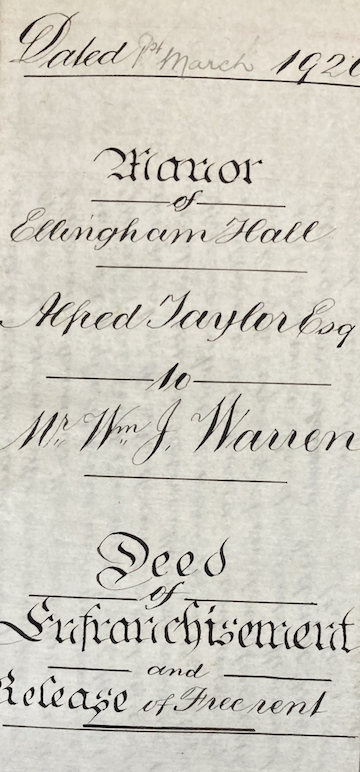 Dated 1st March 1920
Manor
of
Ellingham Hall
Alfred Taylor Esq
to
Mr Wm J. Warren
Deed
of
Enfranchisement
and
Release of Free rent